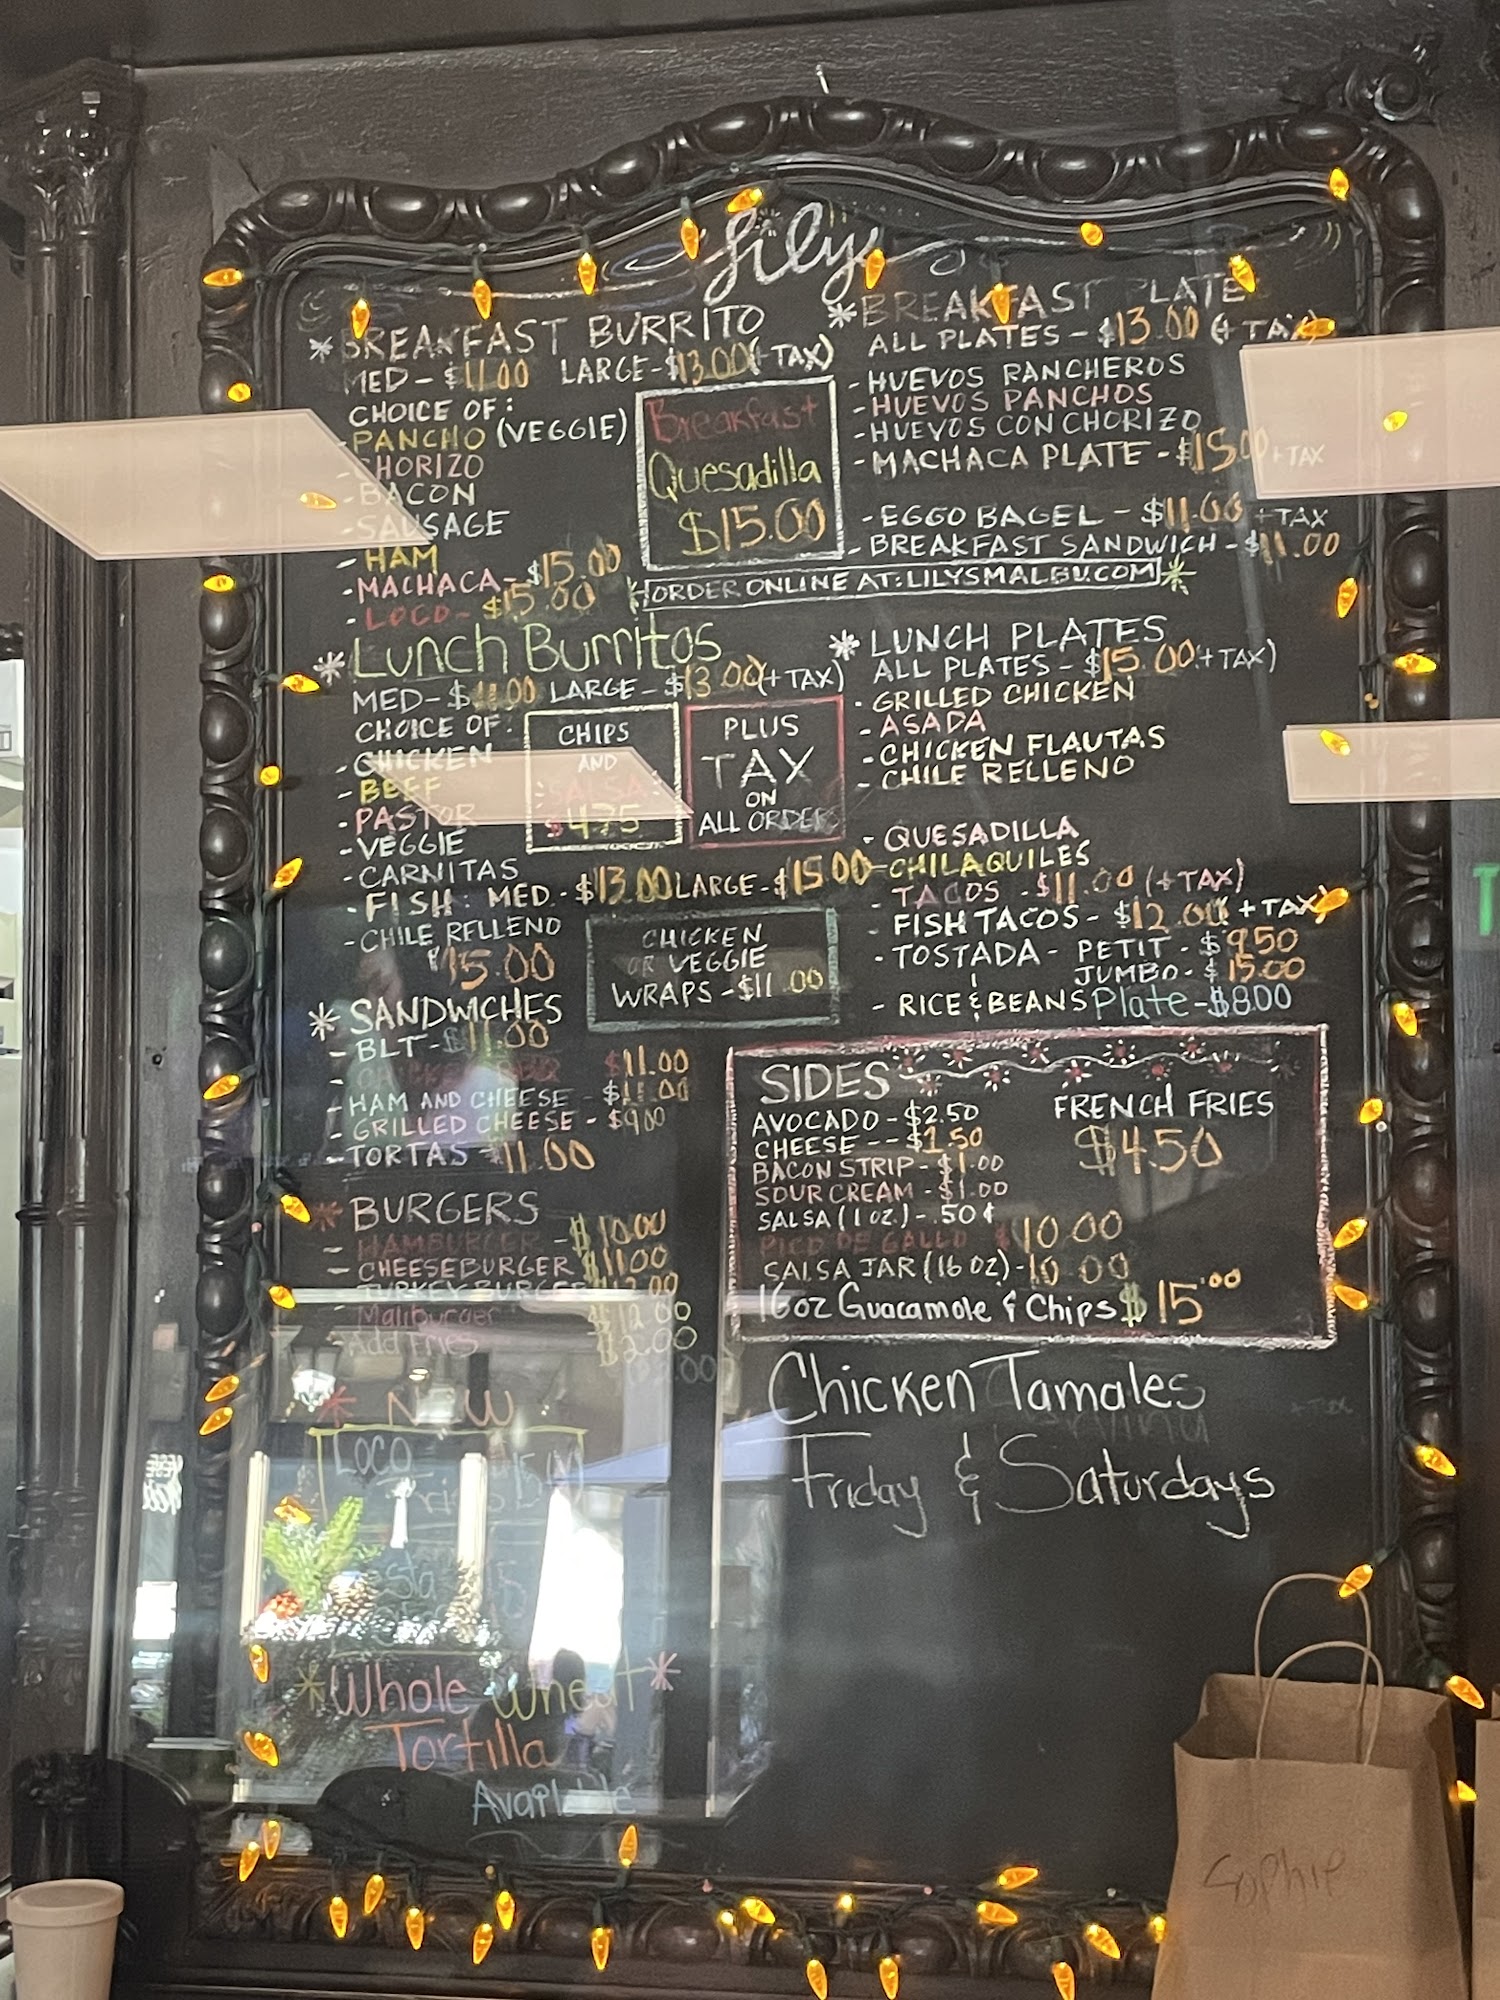 Lilys
*BREAKFAST BURRITO
MED - $11.00 LARGE - $13.00 (+ TAX)
CHOICE OF:
- PANCHO (VEGGIE)
- CHORIZO
- BACON
- SAUSAGE
- HAM
- MACHACA - $15.00
- LOCO - $15.00
Breakfast
Quesadilla
$15.00
*BREAKFAST PLATE
ALL PLATES - $13.00 (+ TAX)
- HUEVOS RANCHEROS
- HUEVOS PANCHOS
- HUEVOS CON CHORIZO
- MACHACA PLATE - $15.00 + TAX
- EGGO BAGEL - $11.00 + TAX
- BREAKFAST SANDWICH - $11.00
ORDER ONLINE AT: LILYSMALBU.COM
*Lunch Burritos
MED - $11.00 LARGE - $13.00 (+ TAX)
CHOICE OF:
- CHICKEN
- BEEF
- PASTOR
- VEGGIE
- CARNITAS
- FISH: MED - $13.00 LARGE - $15.00
- CHILE RELLENO
$15.00
CHIPS
AND
SALSA
$4.75
PLUS
TAX
ON
ALL ORDERS
CHICKEN
OR VEGGIE
WRAPS - $11.00
*LUNCH PLATES
ALL PLATES - $15.00 (+ TAX)
- GRILLED CHICKEN
- ASADA
- CHICKEN FLAUTAS
- CHILE RELLENO
- QUESADILLA
- CHILAQUILES
- TACOS - $11.00 (+ TAX)
- FISH TACOS - $12.00 + TAX
- TOSTADA - PETIT - $9.50
JUMBO - $15.00
- RICE & BEANS Plate - $8.00
*SANDWICHES
- BLT - $11.00
BBQ $11.00
- HAM AND CHEESE - $11.00
- GRILLED CHEESE - $9.00
- TORTAS - $11.00
*BURGERS
- HAMBURGER - $10.00
- CHEESEBURGER $11.00
- TURKEY BURGER $12.00
- Maliburger $12.00
Add fries $2.00
SIDES
AVOCADO - $2.50
CHEESE -- $1.50
BACON STRIP - $1.00
SOUR CREAM - $1.00
SALSA (1 OZ.) - .50¢
PICO DE GALLO $10.00
SALSA JAR (16 OZ) - 10.00
16oz Guacamole & Chips $15.00
FRENCH FRIES
$4.50
Chicken Tamales
Friday & Saturdays
*NEW
LOCO
Fries
*Whole Wheat*
Tortilla
Available
Sophie